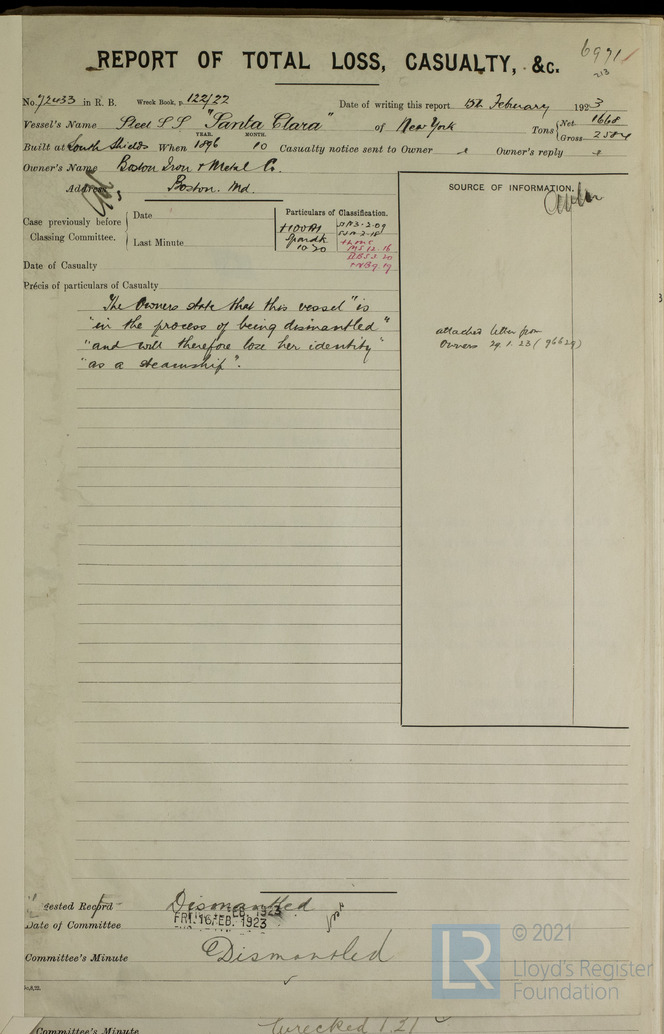 6971
213
REPORT OF TOTAL LOSS, CASUALTY, &c.
No. 72433 in R. B. Wreck Book, p. 122/22 Date of writing this report 15th February 1923
Vessel's Name Steel S S "Santa Clara" of New York Tons Net 1668 Gross 2584
Built at South Shields When YEAR. 1896 MONTH. 10 Casualty notice sent to Owner Owner's reply
Owner's Name Boston Iron & Metal Co.
Address Boston. Md.
SOURCE OF INFORMATION.
Case previously before Classing Committee. Date
Last Minute
Particulars of Classification.
+100A1
10 20
Date of Casualty
Précis of particulars of Casualty
The Owners state that this vessel "is
"in the process of being dismantled"
"and will therefore lose her identity"
"as a steamship".
attached letter from
Owners 29.1.23 (96629)
gested Record Dismantled
Date of Committee FRI. 16 FEB. 1923
Committee's Minute Dismantled
© 2021
LR Lloyd's Register
Foundation
Committee's Minute Wrecked 1.21